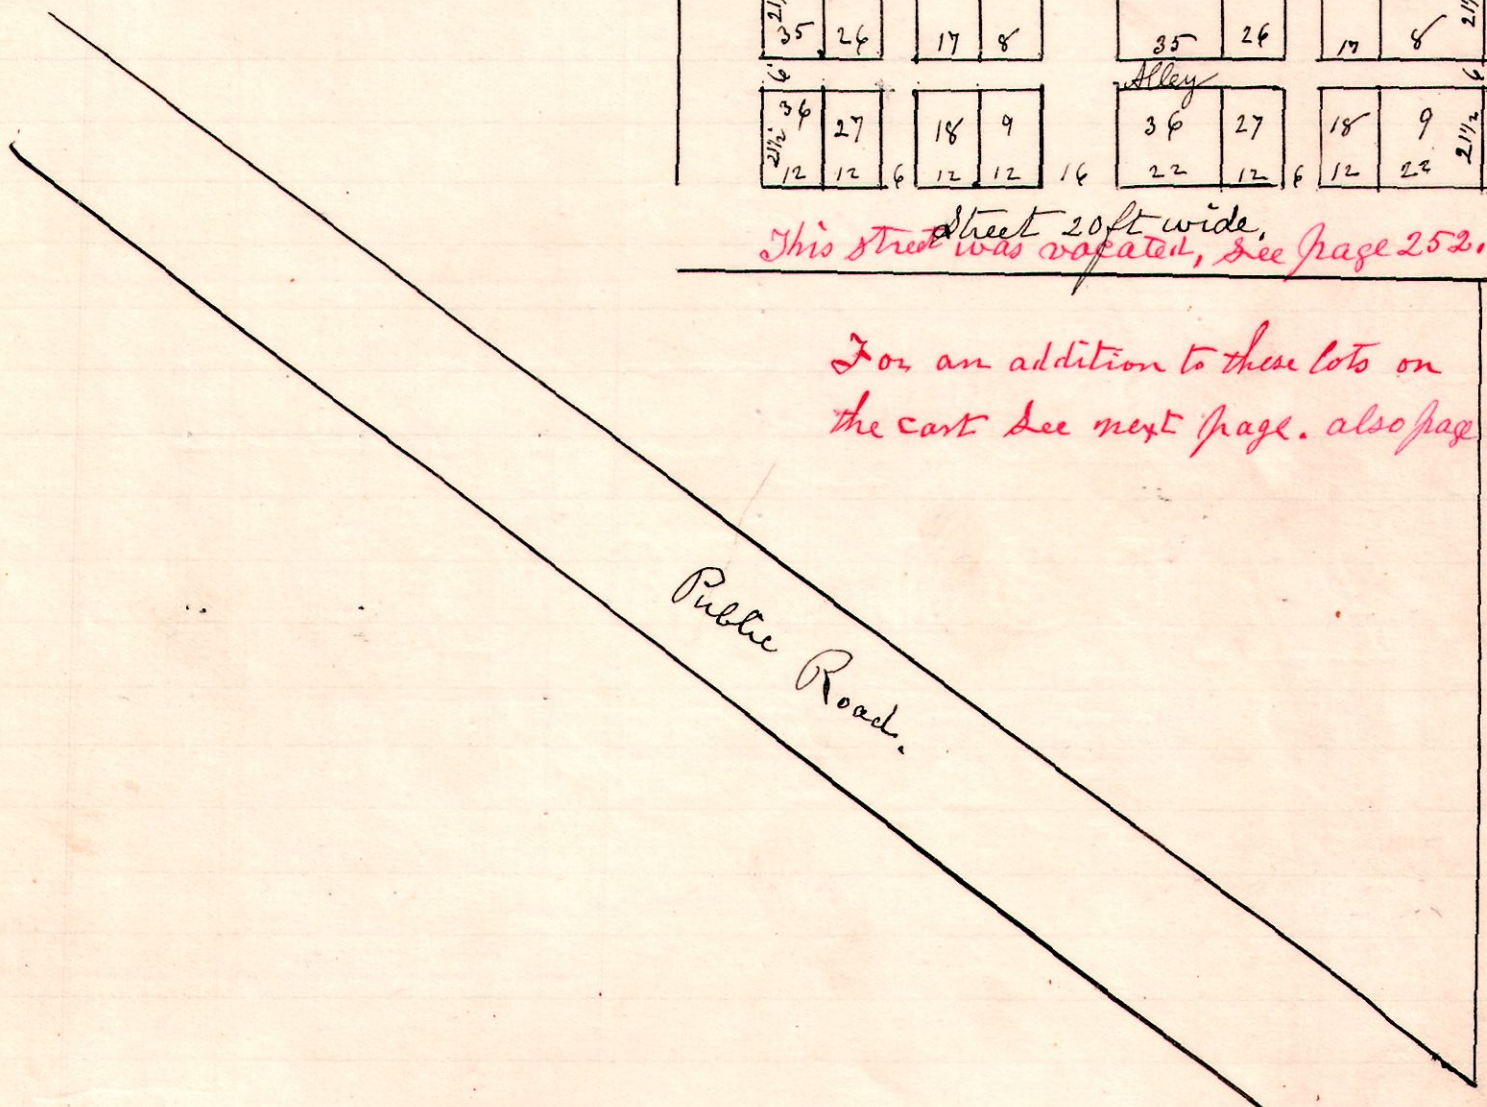 21½
35 26 17 8 35 26 17 8 21½
6' Alley 6
21½' 36 27 18 9 36 27 18 9 21½
12 12 6 12 12 16 22 12 6 12 22
Street 20 ft wide.
This street was vacated, See page 252.
For an addition to these lots on
the east See next page. also page
Public Road.